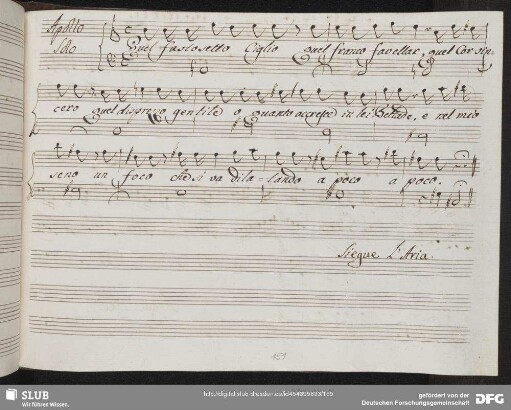 Apollo
Solo
Quel fastosetto Ciglio quel franco favellar, quel Cor sin-
cero quel disprezo gentile o quanto accresce in lei Beltade, e nel mio
seno un foco che si va dila-tando a poco a poco.
Siegue L'Aria.
151
SLUB
Wir führen Wissen.
gefördert von der
Deutschen Forschungsgemeinschaft
DFG